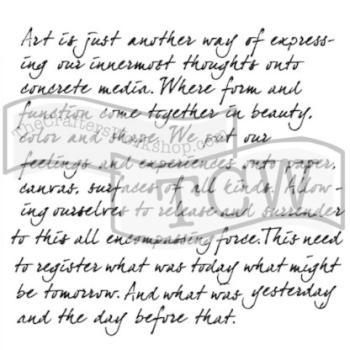 Art is just another way of express-
ing our innermost thoughts onto
concrete media. Where form and
function come together in beauty,
color and shape. We put our
feelings and experiences onto paper,
canvas, surfaces of all kinds. Allow-
ing ourselves to release and surrender
to this all encompassing force. This need
to register what was today what might
be tomorrow. And what was yesterday
and the day before that.
thecraftersworkshop.com
TCW